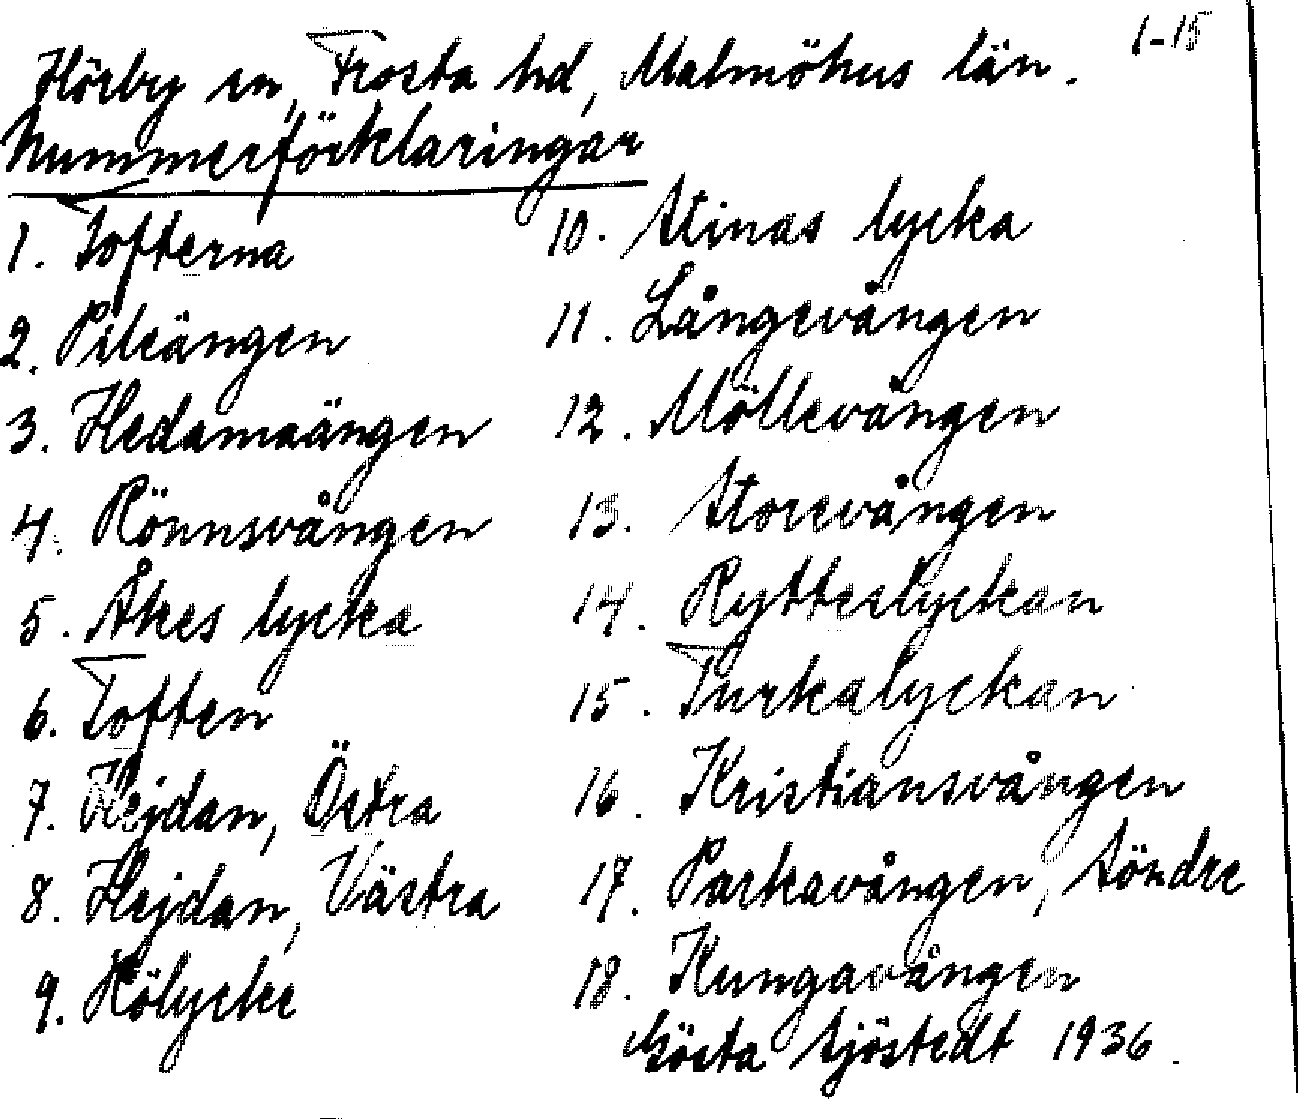 1-15
Hörby sn, Frosta hd, Malmöhus län.
Nummerförklaringar
1. Tofterna
2. Pileängen
3. Hedamaängen
4. Rönnsvången
5. Åkes lycka
6. Toften
7. Hejdan, Östra
8. Hejdan, Västra
9. Kölycke
10. Stinas lycka
11. Långevången
12. Möllevången
13. Storevången
14. Rytteslyckan
15. Turkalyckan
16. Kristiansvången
17. Parkavången, Söndre
18. Kungavången
Gösta Sjöstedt 1936.